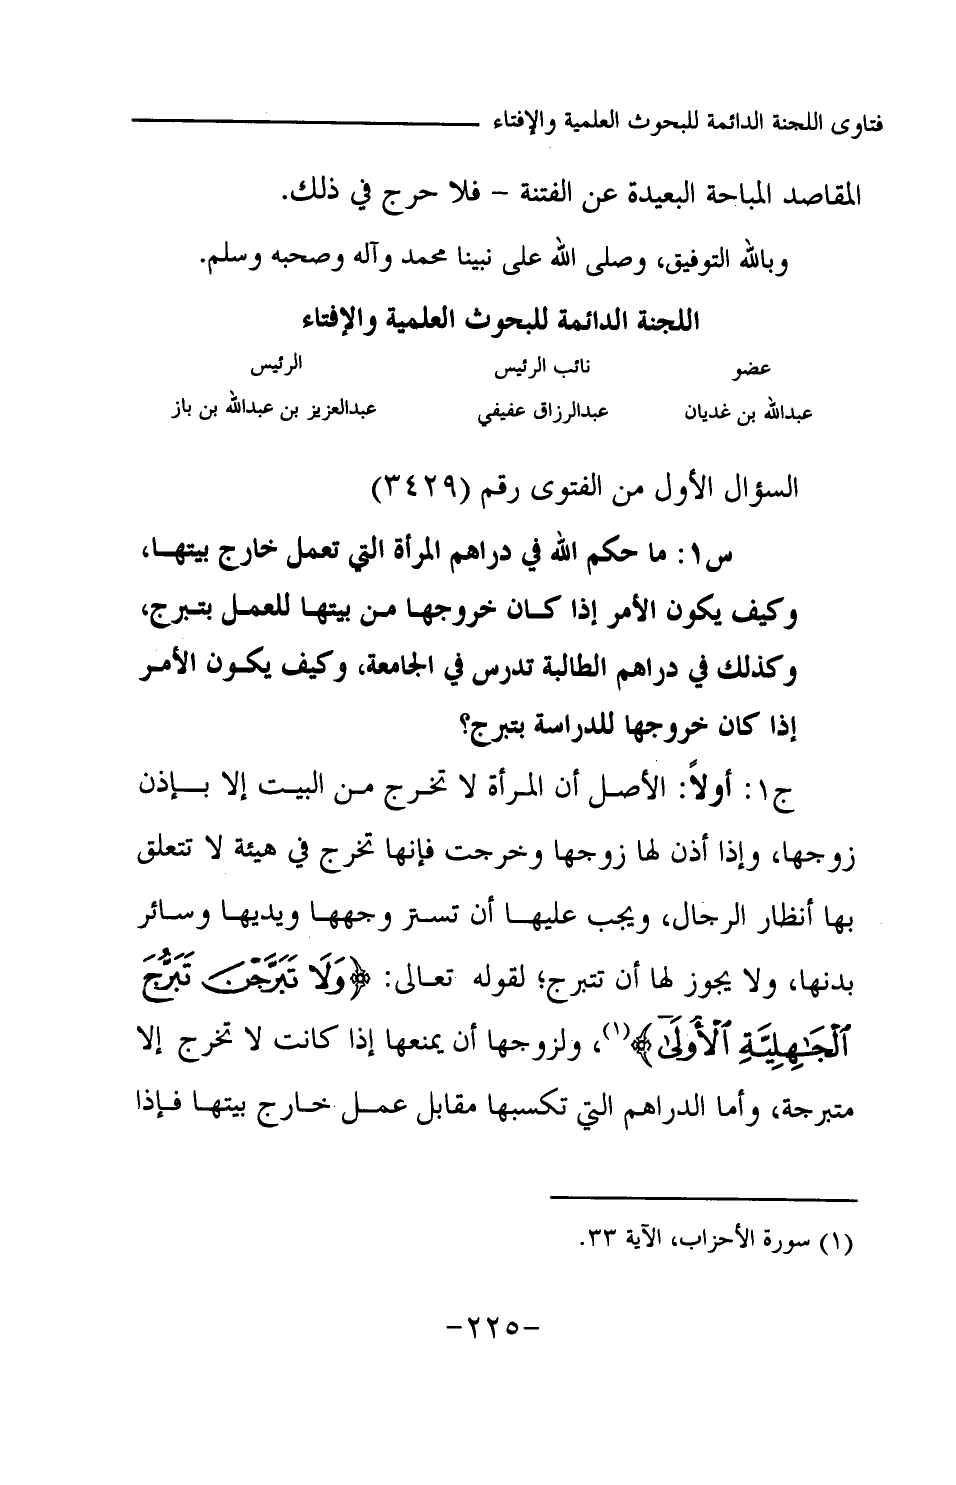 فتاوى اللجنة الدائمة للبحوث العلمية والإفتاء
المقاصد المباحة البعيدة عن الفتنة – فلا حرج في ذلك.
وبالله التوفيق، وصلى الله على نبينا محمد وآله وصحبه وسلم.
اللجنة الدائمة للبحوث العلمية والإفتاء
عضو نائب الرئيس الرئيس
عبدالله بن غديان عبدالرزاق عفيفي عبدالعزيز بن عبدالله بن باز
السؤال الأول من الفتوى رقم (٣٤٢٩)
س١: ما حكم الله في دراهم المرأة التي تعمل خارج بيتهـا،
وكيف يكون الأمر إذا كـان خروجهـا مـن بيتهـا للعمـل بتـبرج،
وكذلك في دراهم الطالبة تدرس في الجامعة، وكيف يكـون الأمـر
إذا كان خروجها للدراسة بتبرج؟
ج١: أولاً: الأصـل أن المـرأة لا تخـرج مـن البيـت إلا بـإذن
زوجها، وإذا أذن لها زوجها وخرجت فإنها تخرج في هيئة لا تتعلق
بها أنظار الرجال، ويجب عليهـا أن تسـتر وجههـا ويديهـا وسـائر
بدنها، ولا يجوز لها أن تتبرج؛ لقوله تعـالى: ﴿وَلَا تَبَرَّجْنَ تَبَرُّجَ
ٱلْجَـٰهِلِيَّةِ ٱلْأُولَىٰ﴾(١)، ولزوجها أن يمنعها إذا كانت لا تخرج إلا
متبرجة، وأما الدراهم التي تكسبها مقابل عمـل خـارج بيتهـا فـإذا
(١) سورة الأحزاب، الآية ٣٣.
-٢٢٥-